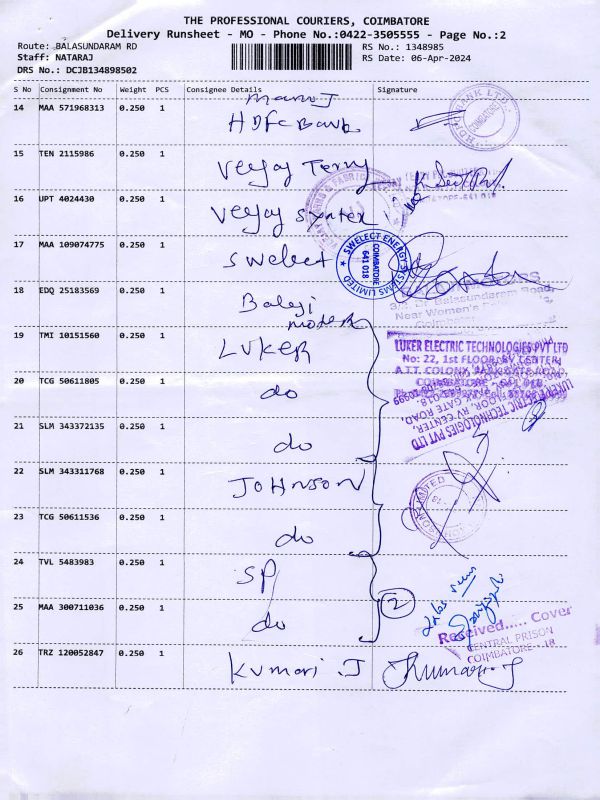 THE PROFESSIONAL COURIERS, COIMBATORE
Delivery Runsheet - MO - Phone No.:0422-3505555 - Page No.:2
Route: BALASUNDARAM RD RS No.: 1348985
Staff: NATARAJ RS Date: 06-Apr-2024
DRS No.: DCJB134898502
S No Consignment No Weight PCS Consignee Details Signature
14 MAA 571968313 0.250 1 Manoj
HDFC Bank
15 TEN 2115986 0.250 1 Veejay Terry
16 UPT 4024430 0.250 1 Veejay Syntex
17 MAA 109074775 0.250 1 Swelect
SWELECT ENERGY SYSTEMS LIMITED
COIMBATORE
641 018
18 EDQ 25183569 0.250 1 Balaji
modern
3/2, Dr. Balasundaram Road,
Near Women's
19 TMI 10151560 0.250 1 LUKER
LUKER ELECTRIC TECHNOLOGIES PVT LTD
No: 22, 1st FLOOR, RV CENTER,
A.T.T. COLONY, PARK GATE ROAD,
COIMBATORE - 641 018.
LUKER ELECTRIC TECHNOLOGIES PVT LTD
20 TCG 50611805 0.250 1 do
21 SLM 343372135 0.250 1 do
22 SLM 343311768 0.250 1 JOHNSON
23 TCG 50611536 0.250 1 do
24 TVL 5483983 0.250 1 SP
25 MAA 300711036 0.250 1 do 2
Received..... Cover
CENTRAL PRISON
COIMBATORE - 18
26 TRZ 120052847 0.250 1 Kumari .J JKumari.J